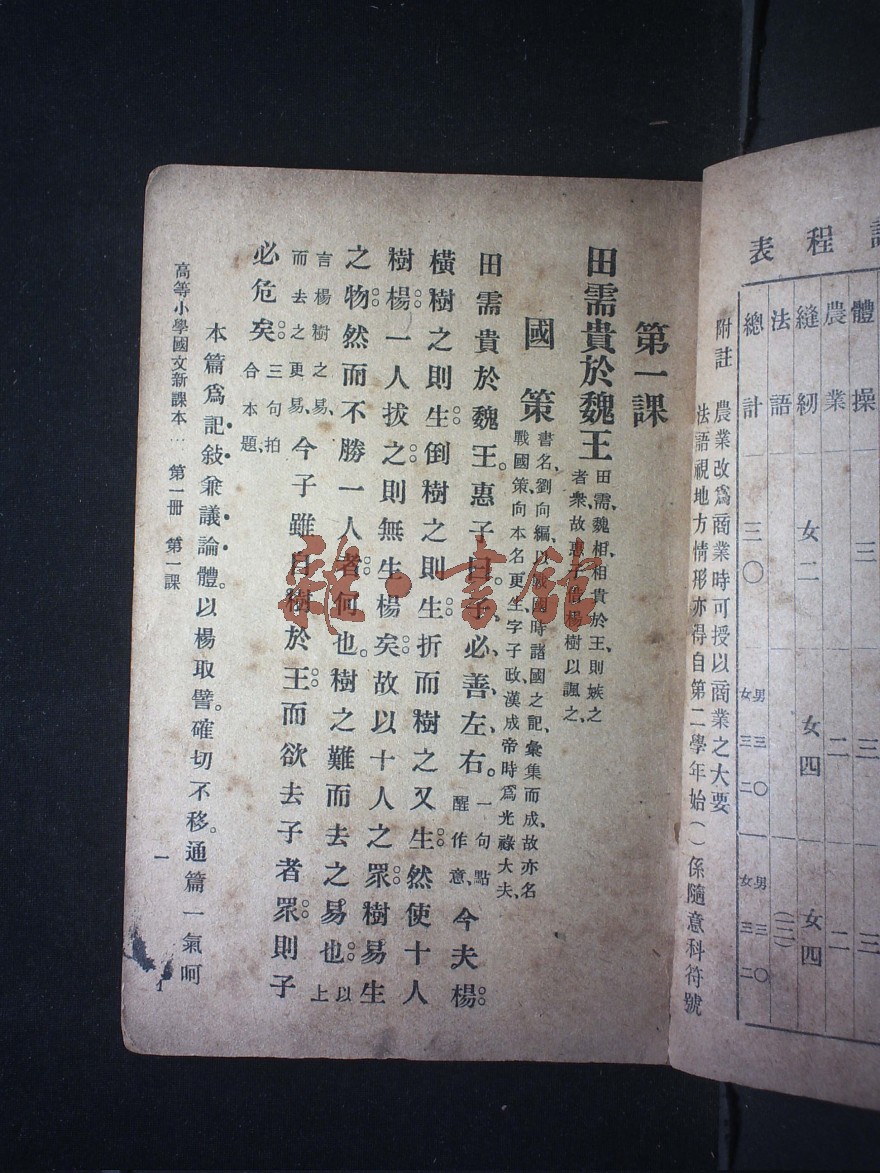 課程表
體操 三 三 三
農業 二 二
縫紉 女二 女四 女四
法語 (三)
總計 三〇 男三〇 女三二 男三〇 女三二
附註 農業改爲商業時可授以商業之大要
法語視地方情形亦得自第二學年始()係隨意科符號
第一課
田需貴於魏王 田需、魏相、相貴於王、則嫉之
者衆、故惠子借楊樹以諷之、
國策 書名、劉向編、以戰國時諸國之記、彙集而成、故亦名
戰國策、向本名更生、字子政、漢成帝時爲光祿大夫、
田需貴於魏王。惠子曰。子必善左右。一句點
醒作意、今夫楊
橫樹之則生。倒樹之則生。折而樹之又生。然使十人
樹楊。一人拔之。則無生楊矣。故以十人之眾。樹易生
之物。然而不勝一人者。何也。樹之難而去之易也。以上
言楊樹之易、
而去之更易、今子雖自樹於王。而欲去子者眾。則子
必危矣。三句拍
合本題、
本篇爲記敍兼議論體。以楊取譬。確切不移。通篇一氣呵
高等小學國文新課本 第一冊 第一課
一
雜·書館